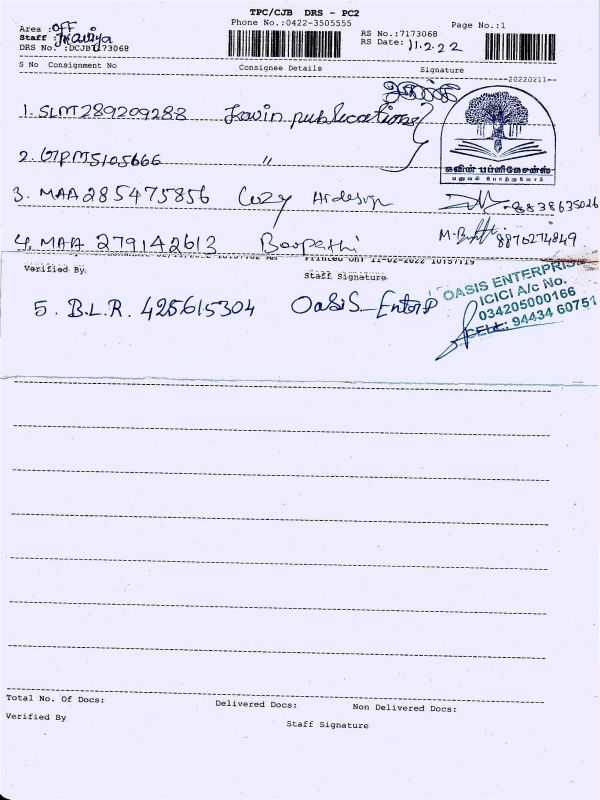 TPC/CJB DRS - PC2
Phone No.:0422-3505555
Page No.:1
Area : off
Staff : Jkaviya
DRS No. :DCJBT173068
RS No.:7173068
RS Date: 11.2.22
S No Consignment No Consignee Details Signature
20220211
1. SLM289209288 Kavin publications
கவின் பப்ளிகேசன்ஸ்
2. GPM5105666 "
3. MAA 285475856 Cozy Ardesign 8838635026
4. MAA 279142613 Boopathi M.B 8870274849
Printed On: 11-02-2022 10:57:19
Verified By Staff Signature
5. B.L.R. 425615304 OaSiS Enterp
OASIS ENTERPRISE
ICICI A/c No.
034205000166
CELL: 94434 60751
Total No. Of Docs: Delivered Docs: Non Delivered Docs:
Verified By Staff Signature